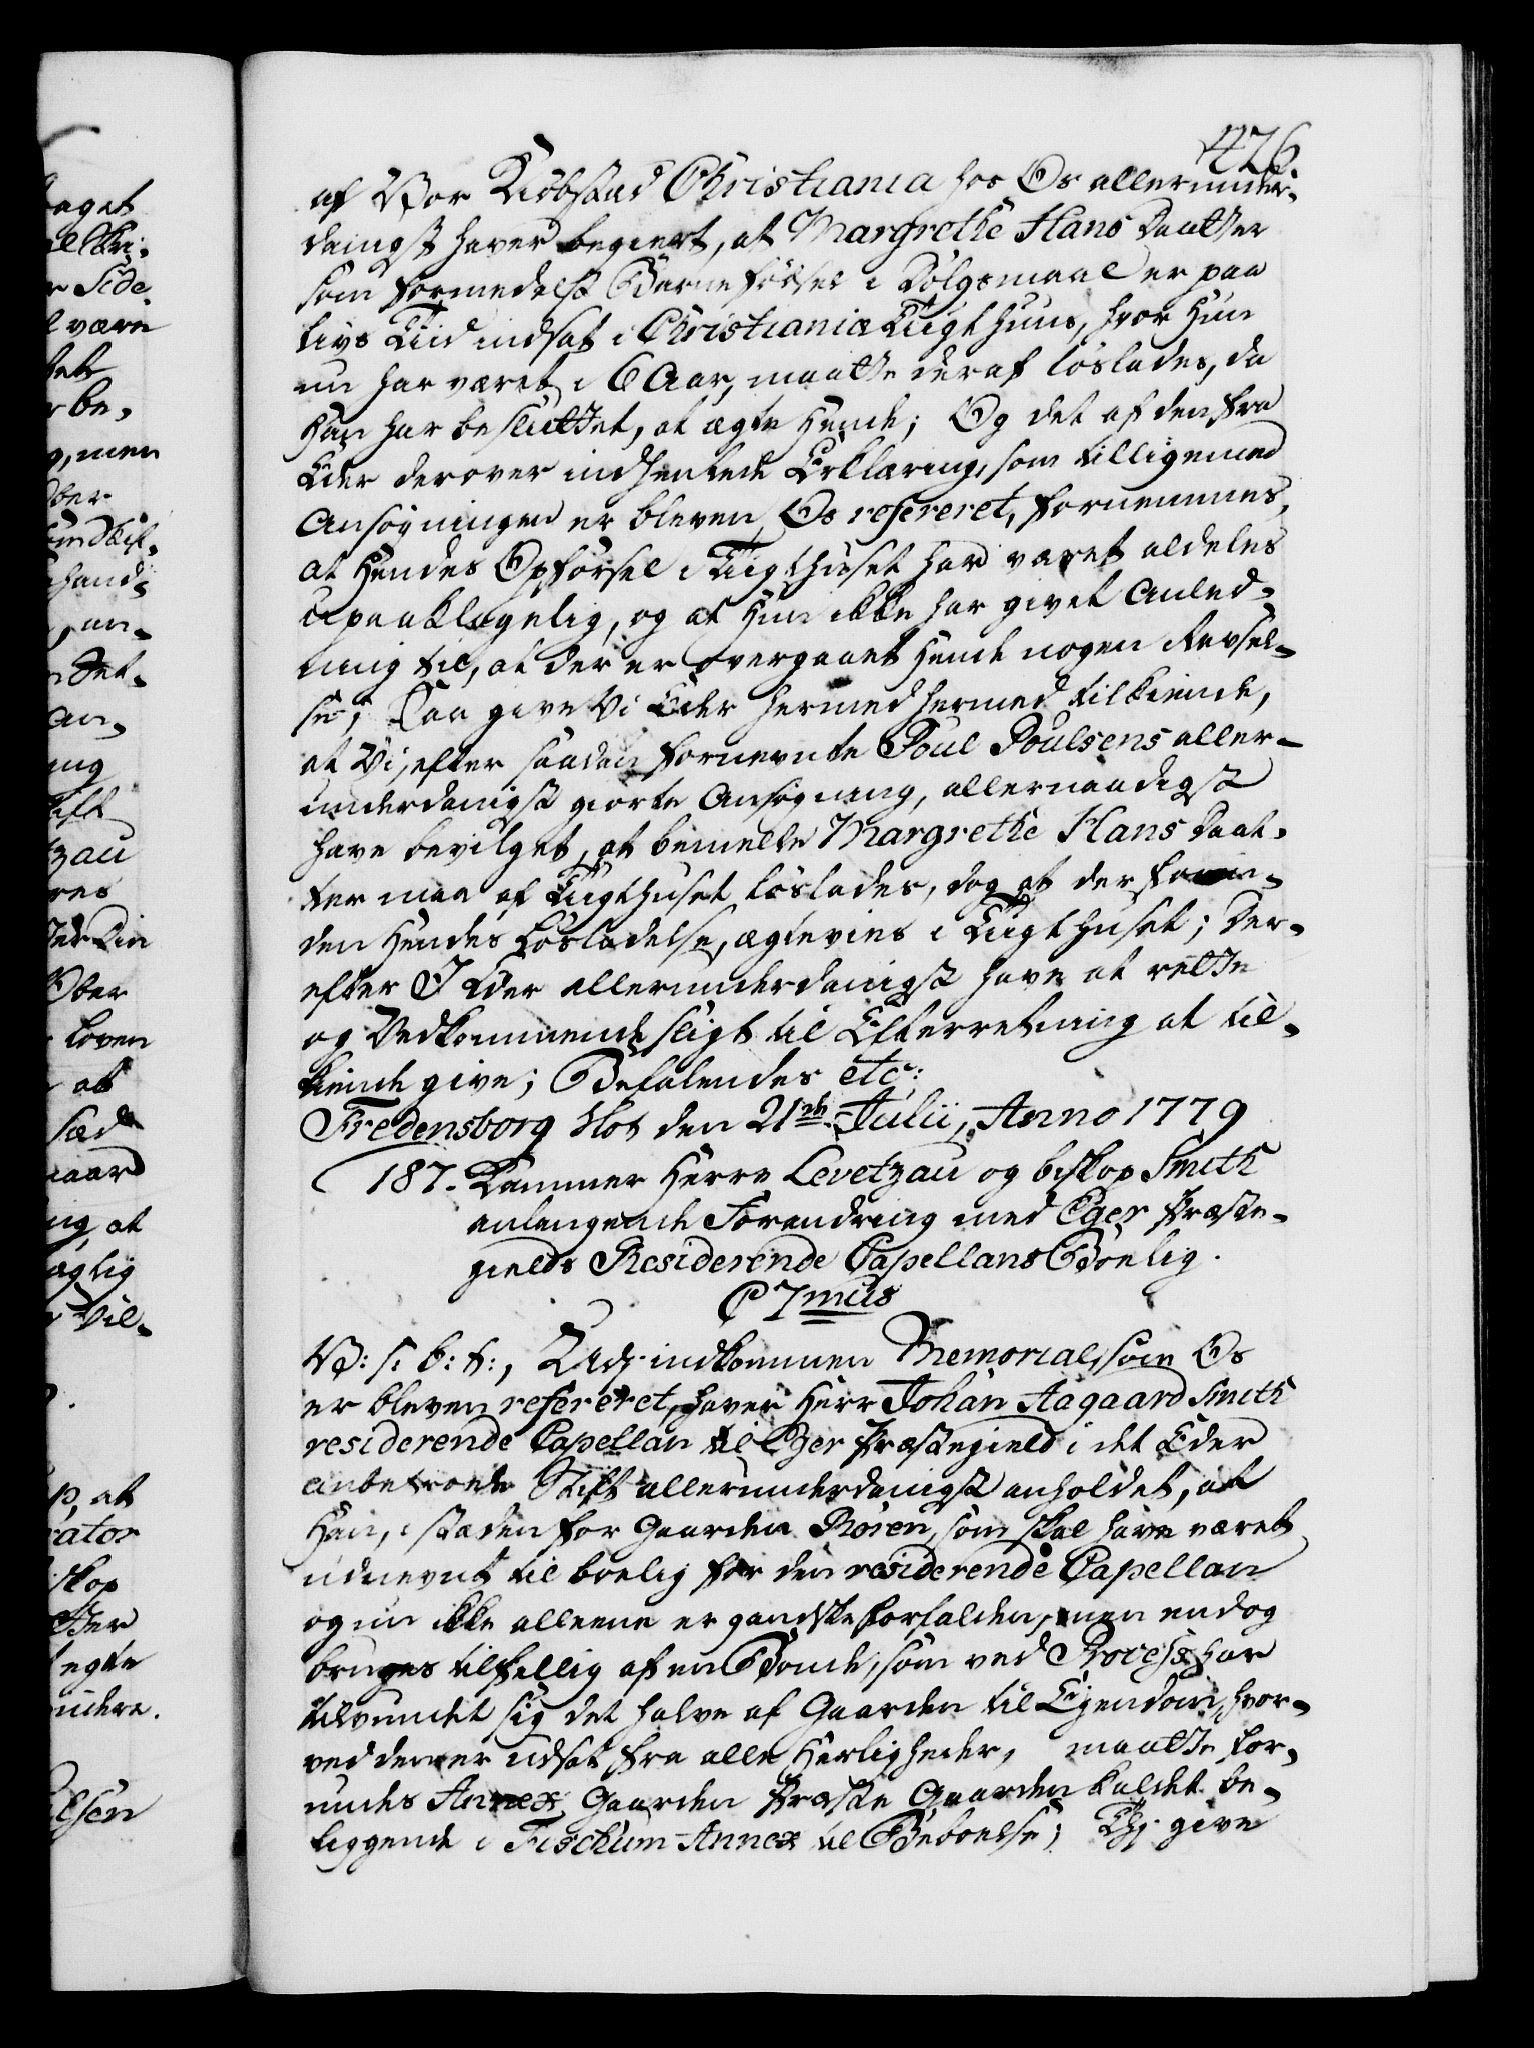 426.
af Vor Kiöbstæd Christiania hos Os allerunder-
danigst haver begiert, at Margrethe Hans Daatter
som formedelst Barnefödsel i Dölgsmaal er paa
livs Tiid indsat i Christiania Tugthuus, hvor Hun
nu har været i 6 Aar, maatte deraf löslades, da
Han har besluttet, at ægte Hende; Og det af den fra
Eder derover indhentede Erklæring, som tilligemed
Ansögningen er bleven Os refereret, fornemmes,
at Hendes Opförsel i Tugthuset har været aldeles
upaaklagelig, og at Hun ikke har givet Anled-
ning til, at der er overgaaet Hende nogen Revsel-
se; Saa give Vi Eder hermed hermed tilkiende,
at Vi, efter saadan fornevnte Poul Poulsens aller-
underdanigst giorte Ansögning, allernaadigst
have bevilget, at bemelte Margrethe Hans Daat-
ter maa af Tugthuset löslades, dog at de, foruin-
den Hendes Lösladelse, ægtevies i Tugthuset; Der-
efter I Eder allerunderdanigst have at rette
og Vedkommende sligt til Efterretning at til-
kiende give; Befalendes etc:
Fredensborg Slot den 21de Julii, Anno 1779
187. Kammer Herre Levetzau og biskop Smith
anlangende Forandring med Eger Præste-
gields Residerende Capellans Boelig.
C 7mus
V: s: b: t:, Udj indkommen Memorial, som Os
er bleven refereret, haver Herr Johan Aagaard Smith
residerende Capellan til Eger Præstegield i det Eder
anbetroede Stift allerunderdanigst anholdet, at
Han, i stæden for Gaarden Rosen, som skal have været
udnevnt til boelig for den residerende Capellan
og nu ikke alleene er gandske forfalden, men endog
bruges tilfellig af en Bonde, som ved Process har
tilvundet sig det halve af Gaarden til Ejendom, hvor-
ved den er udsat fra alle Herligheder, maatte for-
undes Annex Gaarden Præste Gaarden kaldet be-
liggende i Fischum Annex til Beboelse; Thj give